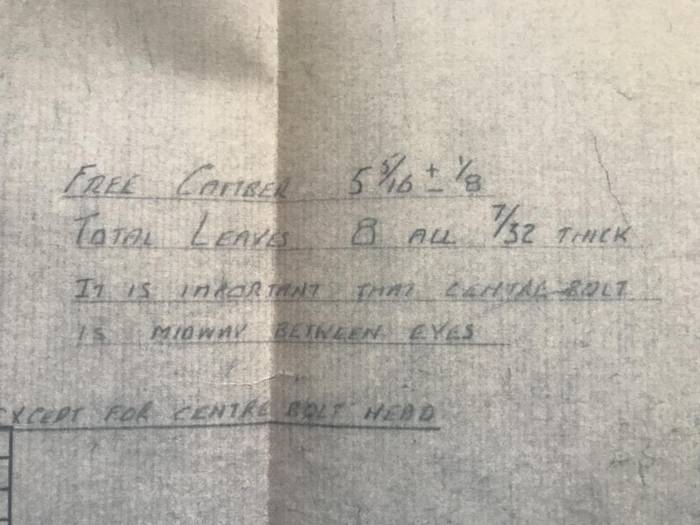 FREE CAMBER 5 5/16 ± 1/8
TOTAL LEAVES 8 ALL 7/32 THICK
IT IS IMPORTANT THAT CENTRE BOLT
IS MIDWAY BETWEEN EYES
XCEPT FOR CENTRE BOLT HEAD